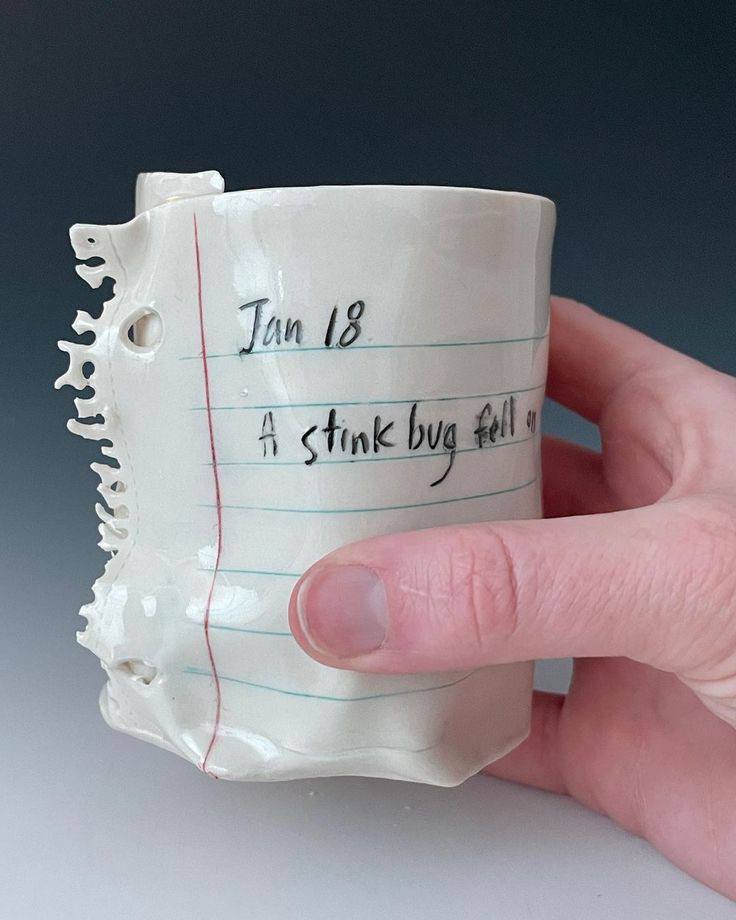 Jan 18
A stink bug fell